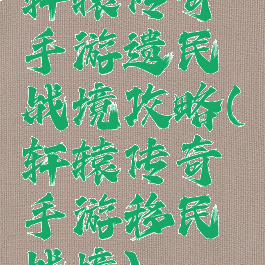 轩辕传奇
手游遗民
战境攻略(
轩辕传奇
手游移民
战境)